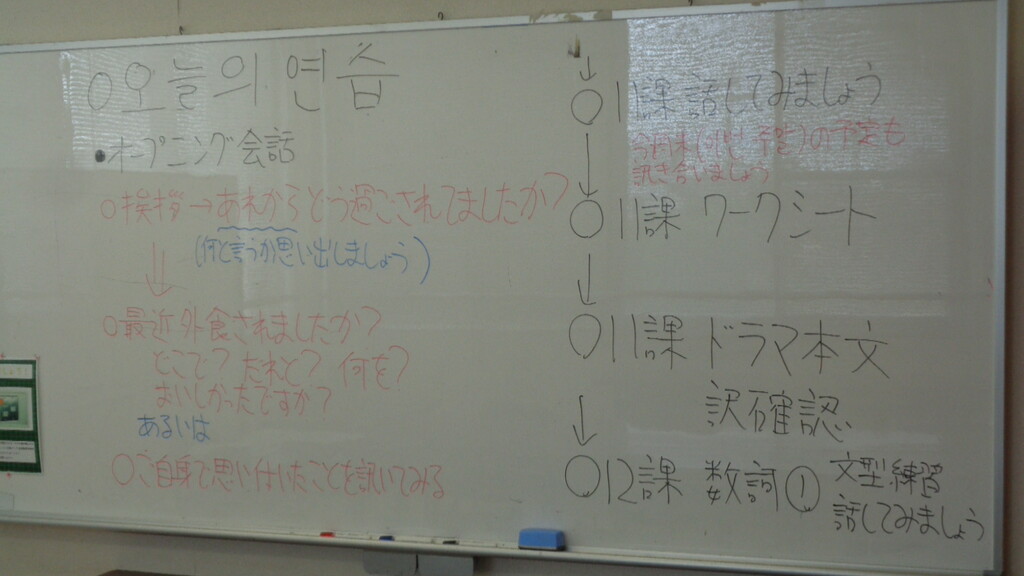 ○오늘의 연습
•オープニング会話
○挨拶→あれからどう過こされてましたか?
(何と言うか思い出しましょう)
↓
○最近外食されましたか?
どこで? だれと? 何を?
おいしかったですか?
あるいは
○ご自身で思い付いたことを訊いてみる
↓
○11課 話してみましょう
の予定も
訊き合いましょう
↓
○11課 ワークシート
↓
○11課 ドラマ本文
訳確認
↓
○12課 数詞① 文型練習
話してみましょう